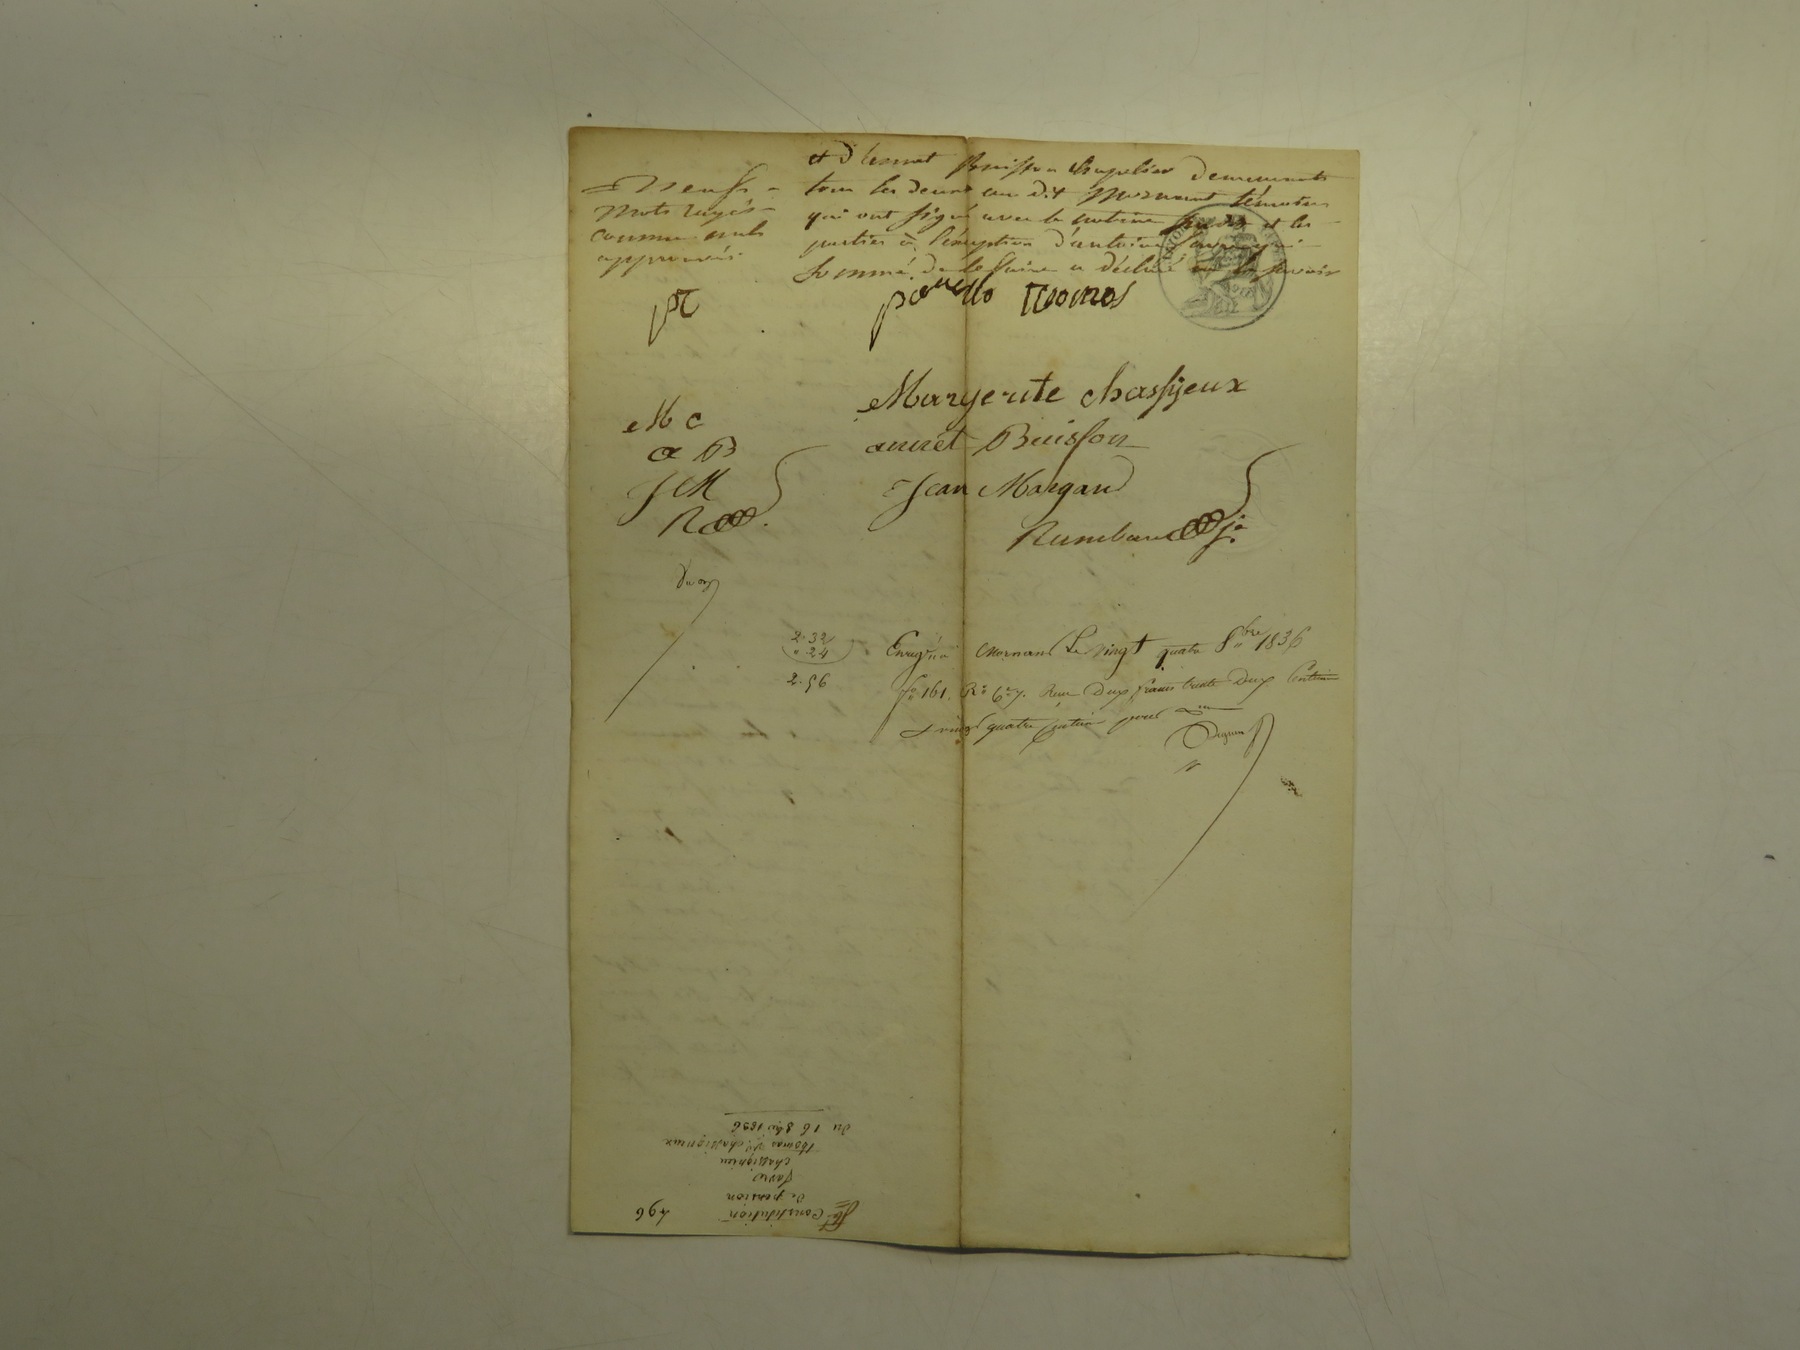 et d'Ennet Buisson chapelier demeurants
tous les deux au dit Mornant témoins
qui ont signé avec le notaire et les
parties à l'éxeption d'antoine qui
Sommé de le faire a déclaré ne le savoir
Neuf
Mots rayés
comme nuls
approuvés
pT
Thomas
Margerite chassijeux
M c
annet Buisson
a B
Jean Margand
J M
R
Enregtré Mornant Le vingt quatre 8bre 1836
fo 161. Ro Deux francs trente Deux Centimes
vingt quatre Centimes pour
2.32
" 24
2.56
496
Constitution
de pension
chassignieu
thomas chassignieux
du 16 8bre 1836